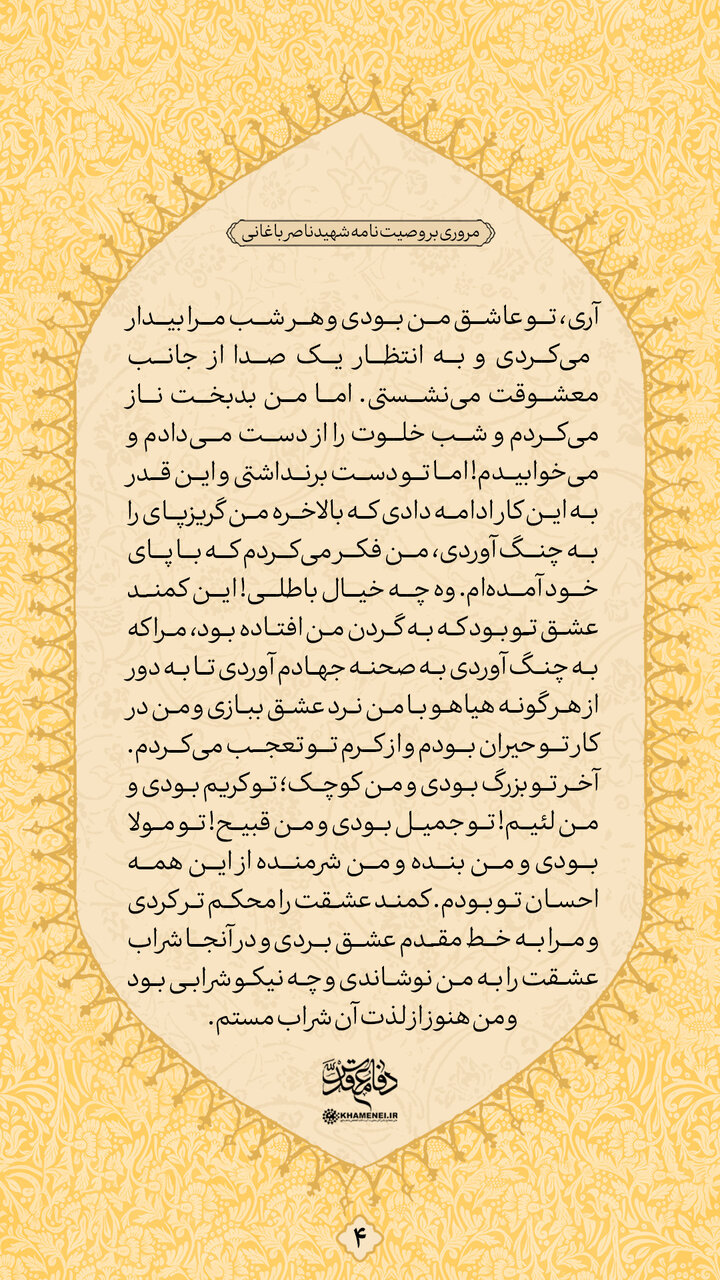 مروری بر وصیت نامه شهید ناصر باغانی
آری، تو عاشق من بودی و هر شب مرا بیدار
می‌کردی و به انتظار یک صدا از جانب
معشوقت می‌نشستی. اما من بدبخت ناز
می‌کردم و شب خلوت را از دست می‌دادم و
می‌خوابیدم! اما تو دست برنداشتی و این قدر
به این کار ادامه دادی که بالاخره من گریزپای را
به چنگ آوردی، من فکر می‌کردم که با پای
خود آمده‌ام. وه چه خیال باطلی! این کمند
عشق تو بود که به گردن من افتاده بود، مرا که
به چنگ آوردی به صحنه جهادم آوردی تا به دور
از هر گونه هیاهو با من نرد عشق ببازی و من در
کار تو حیران بودم و از کرم تو تعجب می‌کردم.
آخر تو بزرگ بودی و من کوچک؛ تو کریم بودی و
من لئیم! تو جمیل بودی و من قبیح! تو مولا
بودی و من بنده و من شرمنده از این همه
احسان تو بودم. کمند عشقت را محکم تر کردی
و مرا به خط مقدم عشق بردی و در آنجا شراب
عشقت را به من نوشاندی و چه نیکو شرابی بود
و من هنوز از لذت آن شراب مستم.
دفاع مقدس
KHAMENEI.IR
۴